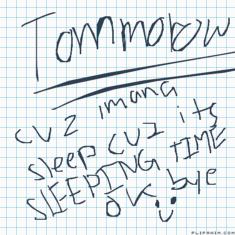 Tommorow
imana
cuz cuz its
sleep
SLEEPING TIME
OK bye
FLIPANIM.COM